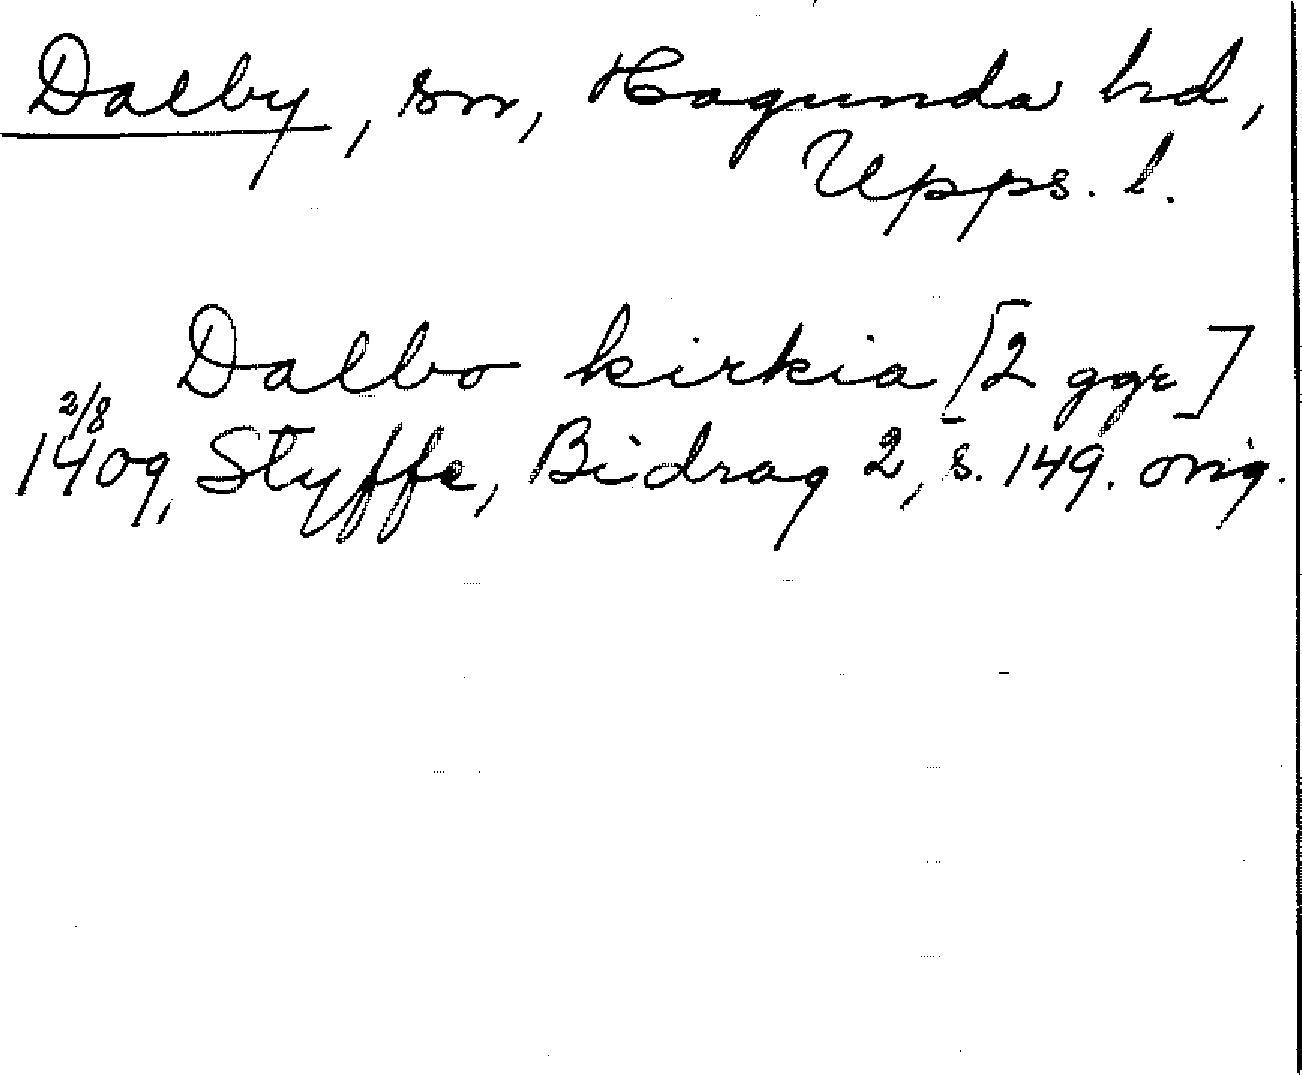 Dalby, sn, Hagunda hd,
Upps. l.
Dalbo kirkia [2 ggr]
2/8
1409, Styffe, Bidrag 2, s. 149. orig.